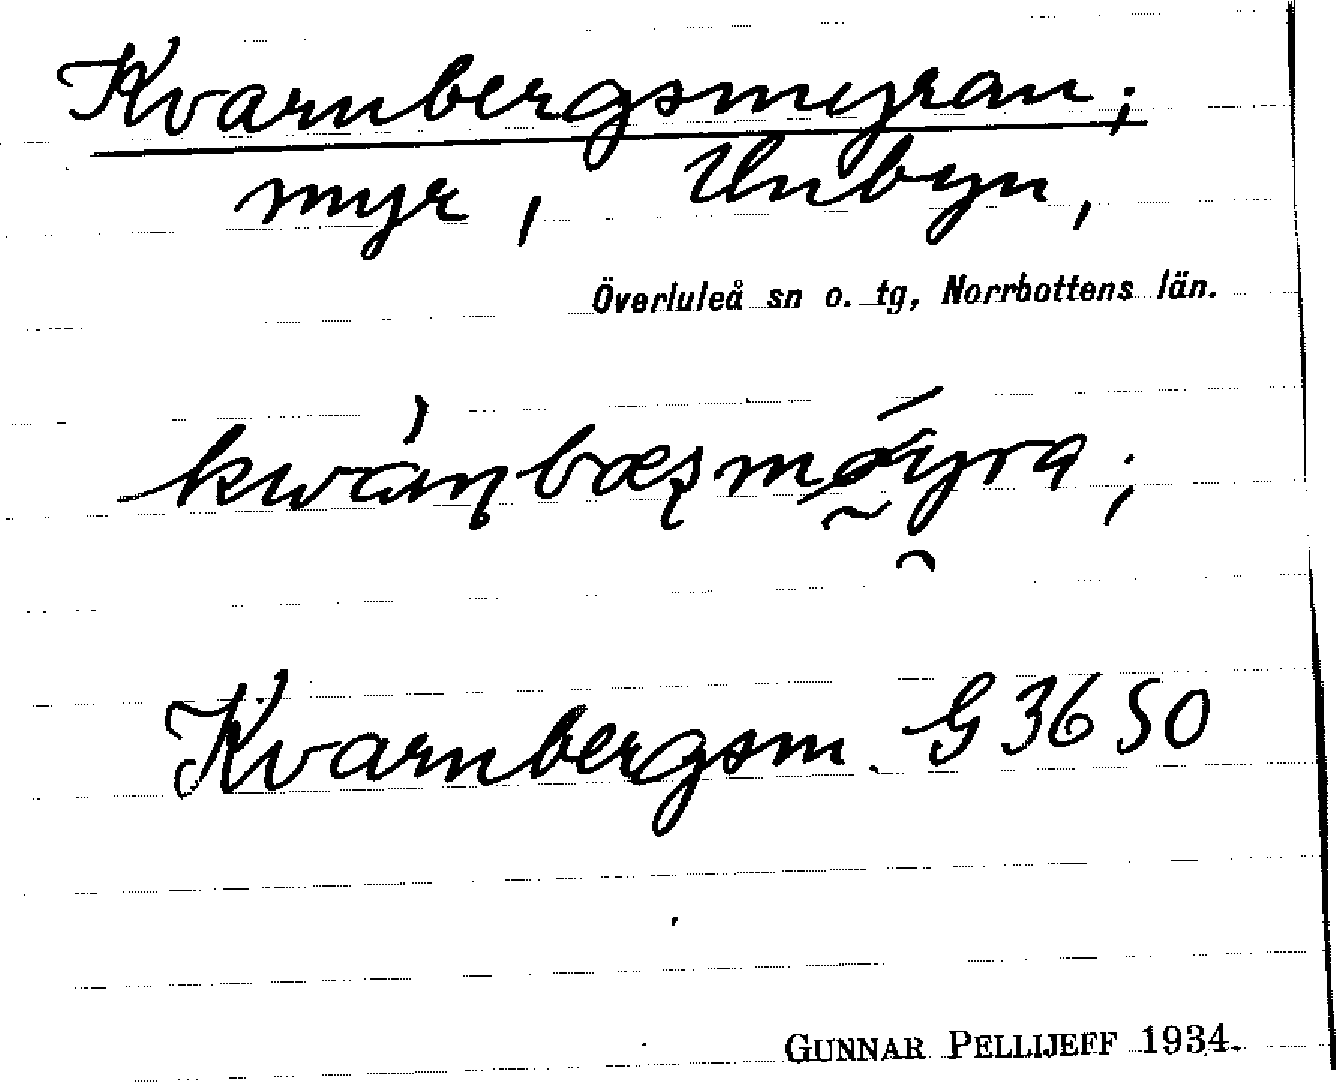 Kvarnbergsmyran;
myr, Unbyn,
Överluleå sn o. tg, Norrbottens län.
Kvarnbergsm. G 36 SO
GUNNAR PELLIJEFF 1934.